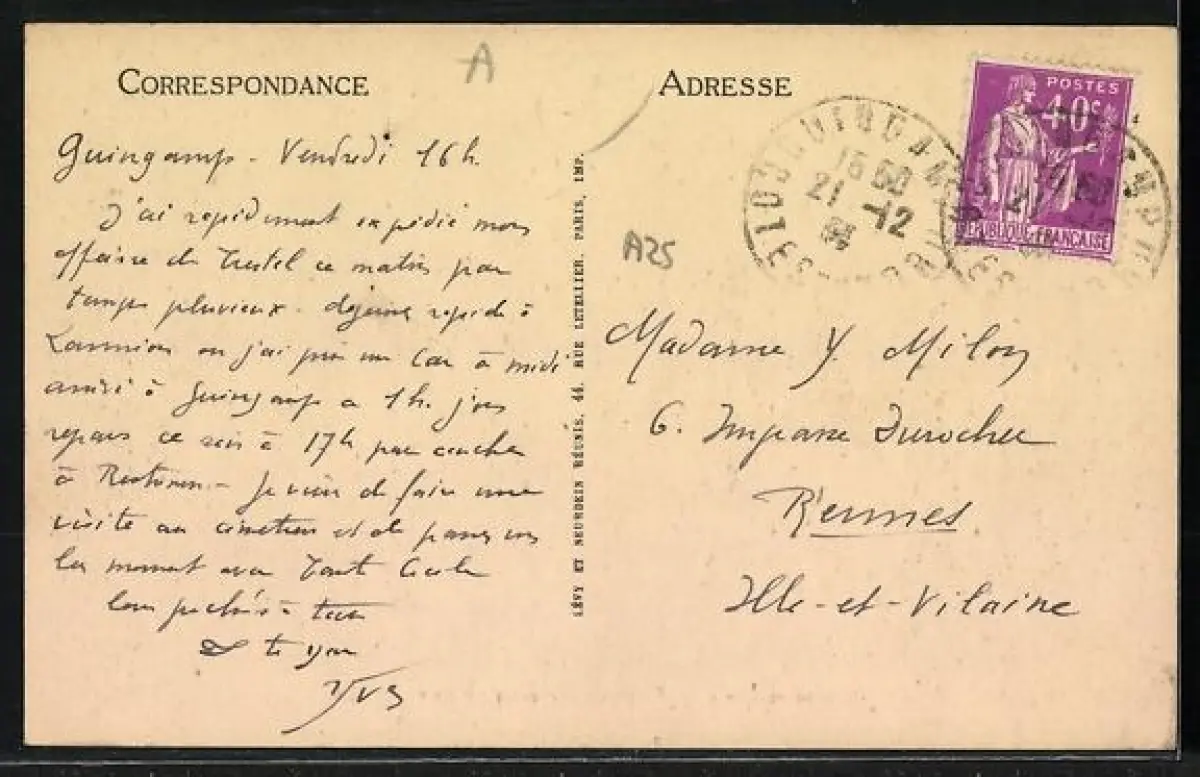 CORRESPONDANCE
A
ADRESSE
POSTES
40c
RÉPUBLIQUE FRANÇAISE
21 -12
Guingamp - Vendredi 16h.
J'ai rapidement expédié mon
affaire de Trestel ce matin par
temps pluvieux. déjeuné rapide à
Lannion où j'ai pris un car à midi
arrivé à Guingamp à 1h. j'en
repars ce soir à 17h pour coucher
à Rostrenen - Je viens de faire une
visite au cimetière et de passer un
moment avec Tante Cécile
à
te
Yves
A25
LÉVY ET NEURDEIN RÉUNIS, 44, RUE LETELLIER, PARIS, IMP.
Madame Y Milon
6. Impasse Durocher
Rennes
Ille-et-Vilaine